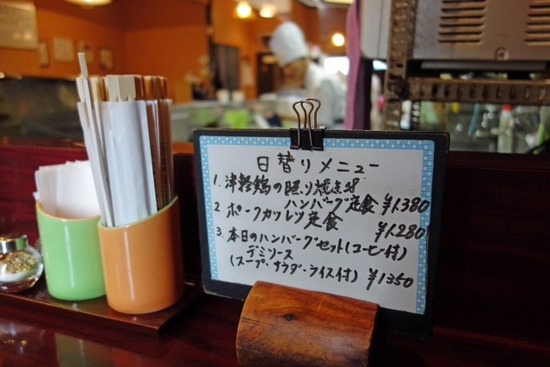 日替りメニュー
1. 津軽鶏の照り焼き
ハンバーグ定食 ¥1,380
2 ポークカツレツ定食
¥1,280
3 本日のハンバーグセット(コーヒー付)
デミソース
(スープ・サラダ・ライス付) ¥1350